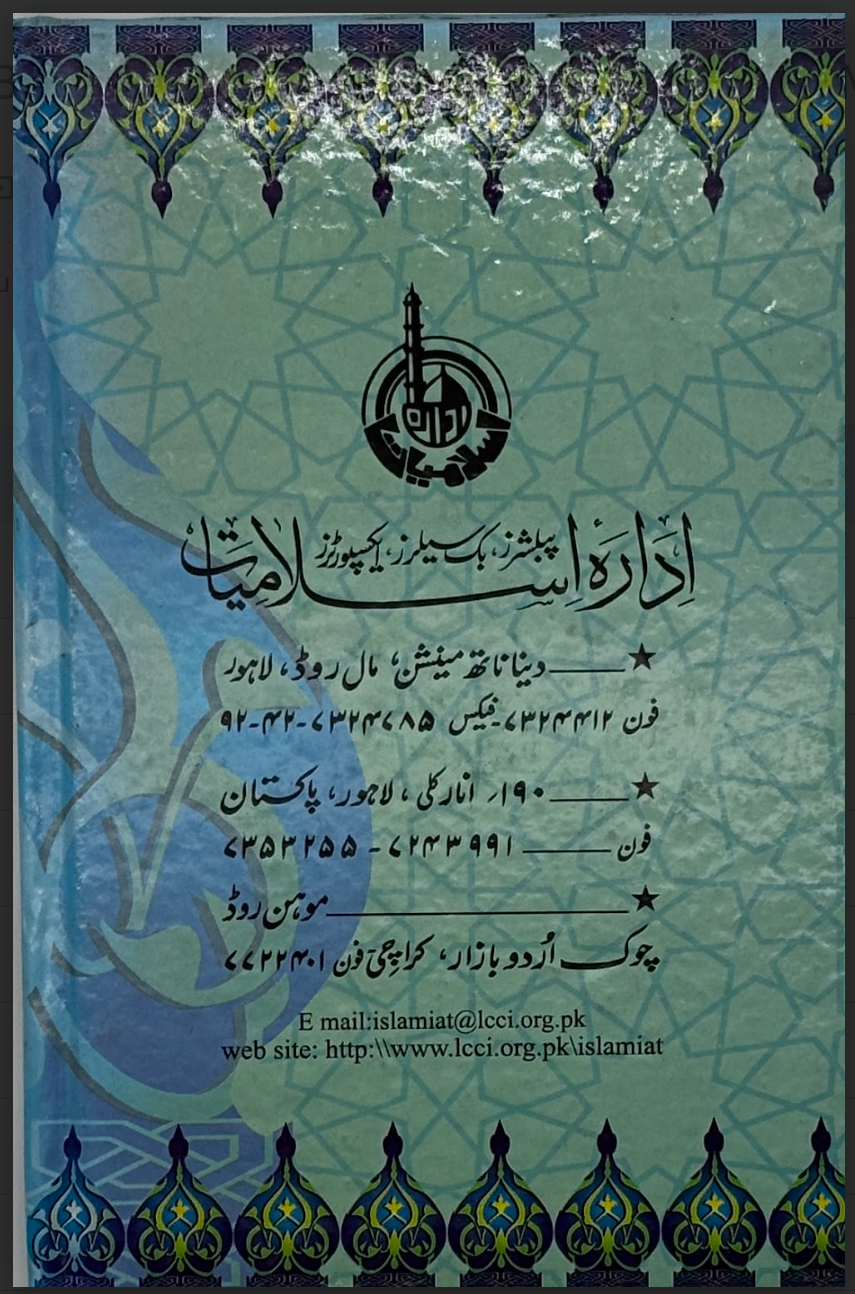 ادارہ
اسلامیات
ادارۂ اسلامیات پبلشرز، بک سیلرز، ایکسپورٹرز
★ــــــ دینا ناتھ مینشن، مال روڈ، لاہور
فون ۷۳۲۴۴۱۲-فیکس ۷۳۲۴۷۸۵-۴۲-۹۲
★ــــــ ۱۹۰/ انارکلی، لاہور، پاکستان
فون ــــــ ۷۲۴۳۹۹۱ - ۷۳۵۳۲۵۵
★ــــــ موہن روڈ
چوک اُردو بازار، کراچی فون ۷۷۲۲۴۰۱
E mail:islamiat@lcci.org.pk
web site: http:\\www.lcci.org.pk\islamiat